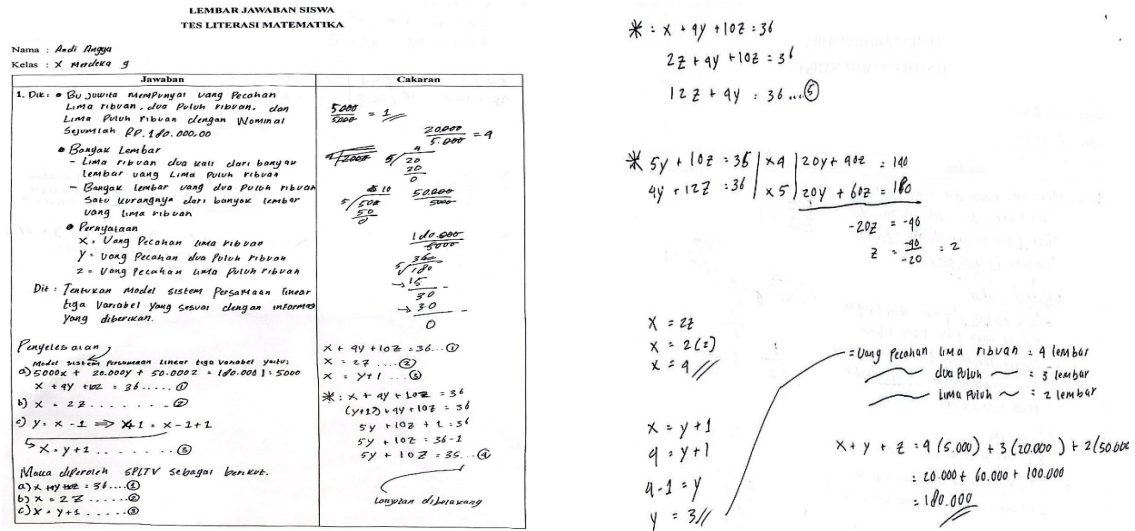 LEMBAR JAWABAN SISWA
TES LITERASI MATEMATIKA
Nama : Andi Angga
Kelas : X Merdeka 9
Jawaban
1. Dik : • Bu Juwita mempunyai uang pecahan
Lima ribuan, dua puluh ribuan, dan
Lima puluh ribuan dengan Nominal
Sejumlah RP. 180.000,00
• Banyak Lembar
- Lima ribuan dua kali dari banyak
lembar uang Lima puluh ribuan
- Banyak lembar uang dua puluh ribuan
satu kurangnya dari banyak lembar
uang lima ribuan
• Pernyataan
X = Uang Pecahan lima ribuan
Y = uang pecahan dua Puluh ribuan
Z = Uang Pecahan lima Puluh ribuan
Dit : Tentukan model sistem Persamaan linear
tiga Variabel yang sesuai dengan informasi
yang diberikan.
Penyelesaian
Model sistem persamaan linear tiga variabel yaitu:
a) 5000x + 20.000y + 50.000z = 180.000 | : 5000
x + 4y + 10z = 36 ..... ①
b) x = 2z ........ ②
c) y = x - 1 ⇒ y+1 = x - 1 + 1
↳ x = y+1 ........ ③
Maka diperoleh SPLTV sebagai berikut.
a) x + 4y + 10z = 36 .... ①
b) x = 2z ...... ②
c) x = y+1 ..... ③
Cakaran
5.000/5000 = 1
20.000/5.000 = 4
4
5/20
20
0
10
5/50
50
0
50.000/5000
180.000/5000
36
5/180
→ 15 -
30
→ 30 -
0
x + 4y + 10z = 36 ... ①
x = 2z .... ②
x = y+1 .... ③
* : x + 4y + 10z = 36
(y+1) + 4y + 10z = 36
5y + 10z + 1 = 36
5y + 10z = 36 - 1
5y + 10z = 35 ... ④
Lanjutan dibelakang
* : x + 4y + 10z = 36
2z + 4y + 10z = 36
12z + 4y = 36 ... ⑤
* 5y + 10z = 35 | x4 | 20y + 40z = 140
4y + 12z = 36 | x5 | 20y + 60z = 180
-20z = -40
z = -40/-20 = 2
x = 2z
x = 2(2)
x = 4
x = y + 1
4 = y + 1
4 - 1 = y
y = 3
= Uang Pecahan lima ribuan = 4 lembar
~ dua Puluh ~ = 3 lembar
~ Lima Puluh ~ = 2 lembar
x + y + z = 4 (5.000) + 3 (20.000) + 2 (50.000
= 20.000 + 60.000 + 100.000
= 180.000